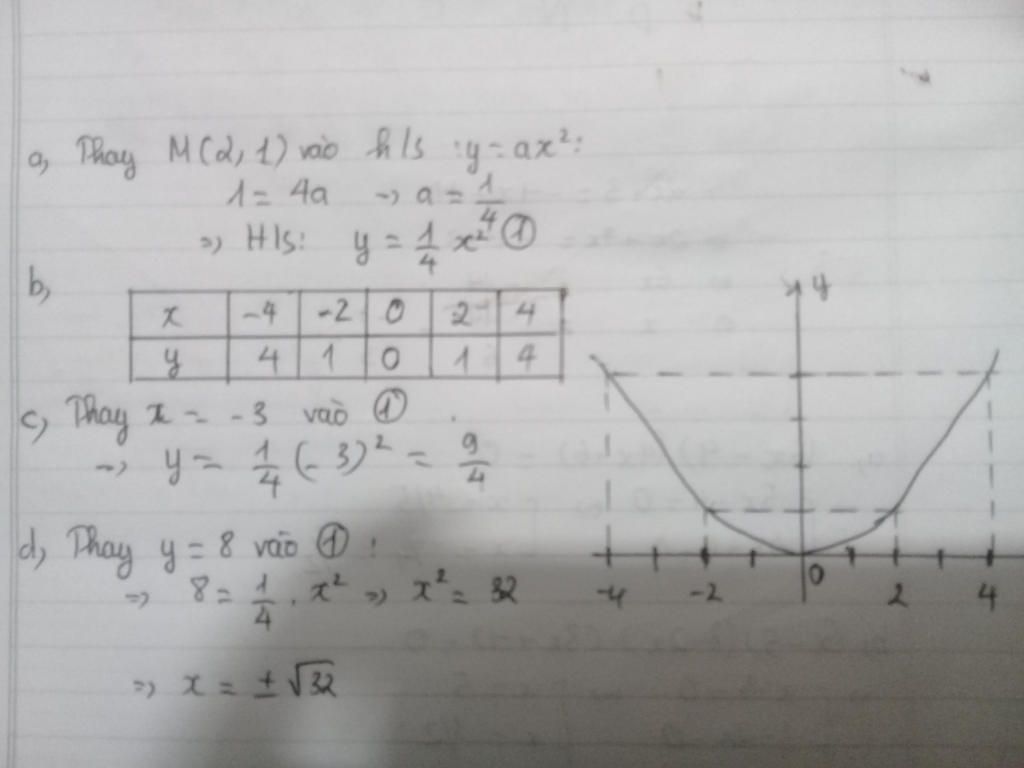 a, Thay M(2,1) vào h/s : y = ax²:
1 = 4a → a = 1/4
=> H/s: y = 1/4 x² ①
b,
x -4 -2 0 2 4
y 4 1 0 1 4
c, Thay x = -3 vào ①
→ y = 1/4 (-3)² = 9/4
d, Thay y = 8 vào ① :
=> 8 = 1/4 . x² => x² = 32
=> x = ± √32
y
-4 -2 0 2 4